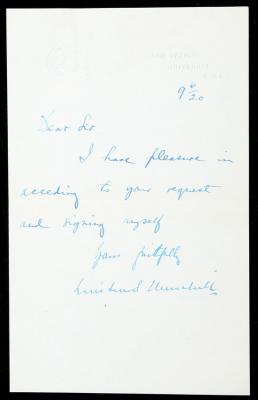 WAR OFFICE,
WHITEHALL,
S.W.1.
9 6/20
Dear Sir
I have pleasure in
acceding to your request
and signing myself
Yours faithfully
Winston S Churchill